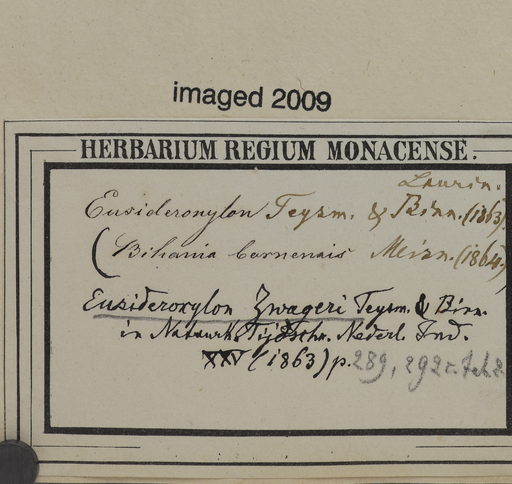 imaged 2009
HERBARIUM REGIUM MONACENSE.
Laurin.
Eusideroxylon Teysm. & Binn. (1863)
(Bihania borneensis Meisn. (1864.)
Eusideroxylon Zwageri Teysm. & Binn.
in Natuurk. Tijdschr. Nederl. Ind.
XXV (1863) p. 289, 292 c.